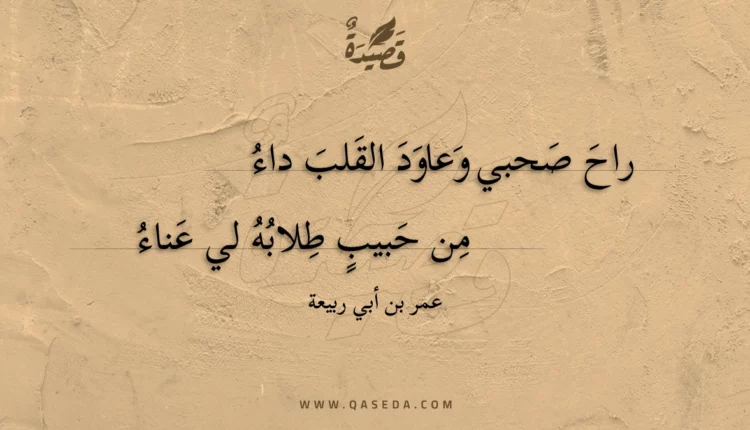 قَصِيدَةٌ
راحَ صَحبي وَعاوَدَ القَلبَ داءُ
مِن حَبيبٍ طِلابُهُ لي عَناءُ
عمر بن أبي ربيعة
WWW.QASEDA.COM